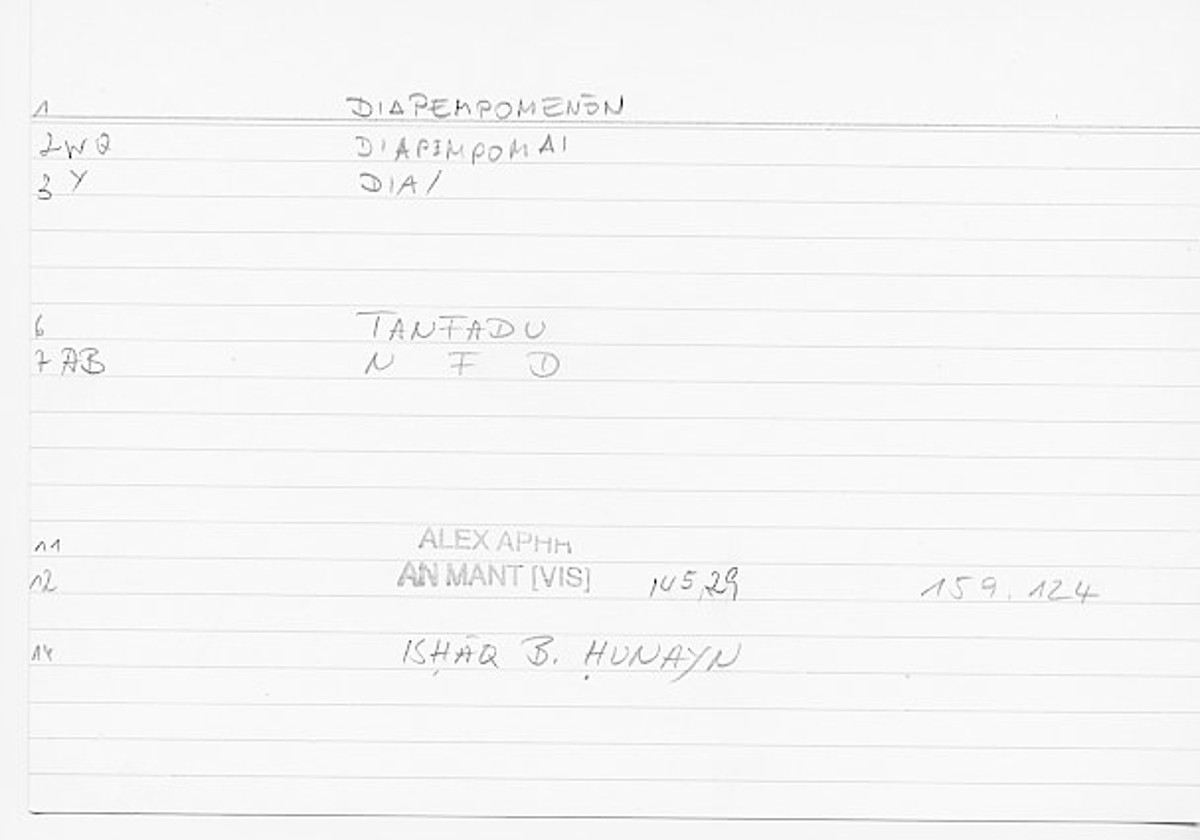 1 DIAPEMPOMENŌN
2WQ DIAPEMPOMAI
3 Y DIA/
6 TANFADU
7 AB N F D
11 ALEX APHR
12 AN MANT [VIS] 145,29 159.124
14 ISḤĀQ B. ḤUNAYN